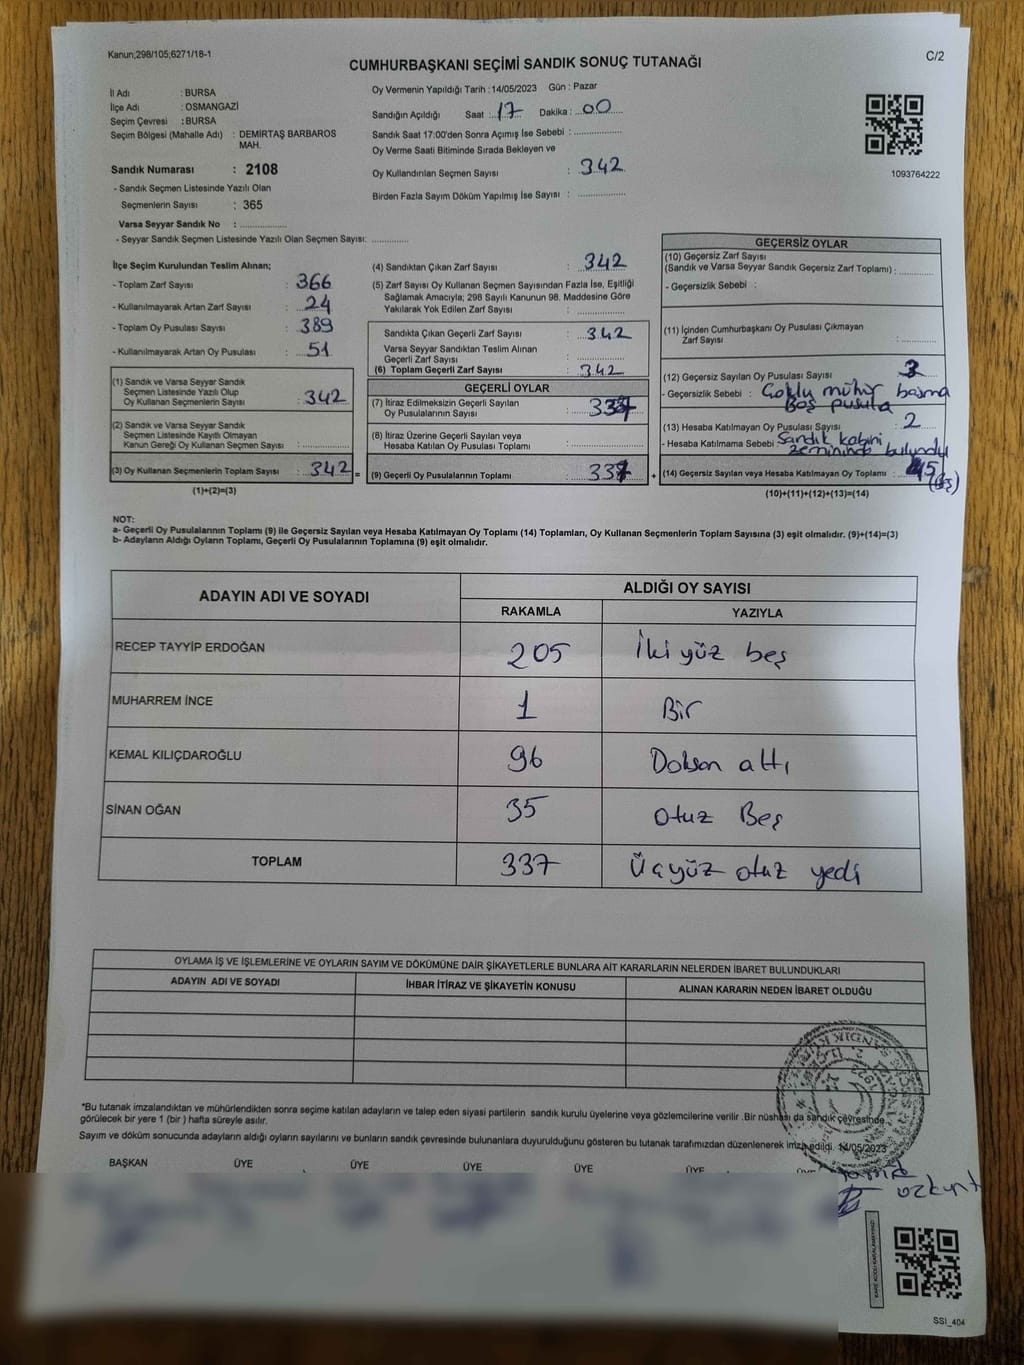 Kanun;298/105;6271/18-1
C/2
CUMHURBAŞKANI SEÇİMİ SANDIK SONUÇ TUTANAĞI
İl Adı : BURSA
İlçe Adı : OSMANGAZİ
Seçim Çevresi : BURSA
Seçim Bölgesi (Mahalle Adı) : DEMİRTAŞ BARBAROS
MAH.
Sandık Numarası : 2108
- Sandık Seçmen Listesinde Yazılı Olan
Seçmenlerin Sayısı : 365
Varsa Seyyar Sandık No : ..............
- Seyyar Sandık Seçmen Listesinde Yazılı Olan Seçmen Sayısı: ...........
Oy Vermenin Yapıldığı Tarih : 14/05/2023 Gün : Pazar
Sandığın Açıldığı Saat : 17 Dakika : 00
Sandık Saat 17:00'den Sonra Açımış İse Sebebi : ..............
Oy Verme Saati Bitiminde Sırada Bekleyen ve
Oy Kullandırılan Seçmen Sayısı : 342
Birden Fazla Sayım Döküm Yapılmış İse Sayısı : ..............
1093764222
İlçe Seçim Kurulundan Teslim Alınan;
- Toplam Zarf Sayısı : 366
- Kullanılmayarak Artan Zarf Sayısı : 24
- Toplam Oy Pusulası Sayısı : 389
- Kullanılmayarak Artan Oy Pusulası : 51
(1) Sandık ve Varsa Seyyar Sandık
Seçmen Listesinde Yazılı Olup
Oy Kullanan Seçmenlerin Sayısı : 342
(2) Sandık ve Varsa Seyyar Sandık
Seçmen Listesinde Kayıtlı Olmayan
Kanun Gereği Oy Kullanan Seçmen Sayısı : ..............
(3) Oy Kullanan Seçmenlerin Toplam Sayısı : 342 =
(1)+(2)=(3)
(4) Sandıktan Çıkan Zarf Sayısı : 342
(5) Zarf Sayısı Oy Kullanan Seçmen Sayısından Fazla İse, Eşitliği
Sağlamak Amacıyla; 298 Sayılı Kanunun 98. Maddesine Göre
Yakılarak Yok Edilen Zarf Sayısı : ..............
Sandıkta Çıkan Geçerli Zarf Sayısı : 342
Varsa Seyyar Sandıktan Teslim Alınan
Geçerli Zarf Sayısı : ..............
(6) Toplam Geçerli Zarf Sayısı : 342
GEÇERLİ OYLAR
(7) İtiraz Edilmeksizin Geçerli Sayılan
Oy Pusulalarının Sayısı : 337
(8) İtiraz Üzerine Geçerli Sayılan veya
Hesaba Katılan Oy Pusulası Toplamı : ..............
(9) Geçerli Oy Pusulalarının Toplamı : 337 +
GEÇERSİZ OYLAR
(10) Geçersiz Zarf Sayısı
(Sandık ve Varsa Seyyar Sandık Geçersiz Zarf Toplamı) : ..........
- Geçersizlik Sebebi :
(11) İçinden Cumhurbaşkanı Oy Pusulası Çıkmayan
Zarf Sayısı : ..............
(12) Geçersiz Sayılan Oy Pusulası Sayısı : 3
- Geçersizlik Sebebi : Çoklu mühür basma
Boş pusula
(13) Hesaba Katılmayan Oy Pusulası Sayısı : 2
- Hesaba Katılmama Sebebi : Sandık kabini
zemininde bulundu
(14) Geçersiz Sayılan veya Hesaba Katılmayan Oy Toplamı : 5
(beş)
(10)+(11)+(12)+(13)=(14)
NOT:
a- Geçerli Oy Pusulalarının Toplamı (9) ile Geçersiz Sayılan veya Hesaba Katılmayan Oy Toplamı (14) Toplamları, Oy Kullanan Seçmenlerin Toplam Sayısına (3) eşit olmalıdır. (9)+(14)=(3)
b- Adayların Aldığı Oyların Toplamı, Geçerli Oy Pusulalarının Toplamına (9) eşit olmalıdır.
ADAYIN ADI VE SOYADI ALDIĞI OY SAYISI
RAKAMLA YAZIYLA
RECEP TAYYİP ERDOĞAN 205 İki yüz beş
MUHARREM İNCE 1 Bir
KEMAL KILIÇDAROĞLU 96 Doksan altı
SİNAN OĞAN 35 Otuz Beş
TOPLAM 337 Üçyüz otuz yedi
OYLAMA İŞ VE İŞLEMLERİNE VE OYLARIN SAYIM VE DÖKÜMÜNE DAİR ŞİKAYETLERLE BUNLARA AİT KARARLARIN NELERDEN İBARET BULUNDUKLARI
ADAYIN ADI VE SOYADI İHBAR İTİRAZ VE ŞİKAYETİN KONUSU ALINAN KARARIN NEDEN İBARET OLDUĞU
*Bu tutanak imzalandıktan ve mühürlendikten sonra seçime katılan adayların ve talep eden siyasi partilerin sandık kurulu üyelerine veya gözlemcilerine verilir .Bir nüshası da sandık çevresinde
görülecek bir yere 1 (bir ) hafta süreyle asılır.
Sayım ve döküm sonucunda adayların aldığı oyların sayılarını ve bunların sandık çevresinde bulunanlara duyurulduğunu gösteren bu tutanak tarafımızdan düzenlenerek imza edildi. 14/05/2023
BAŞKAN ÜYE ÜYE ÜYE ÜYE ÜYE ÜYE
özkunt
SSİ_404